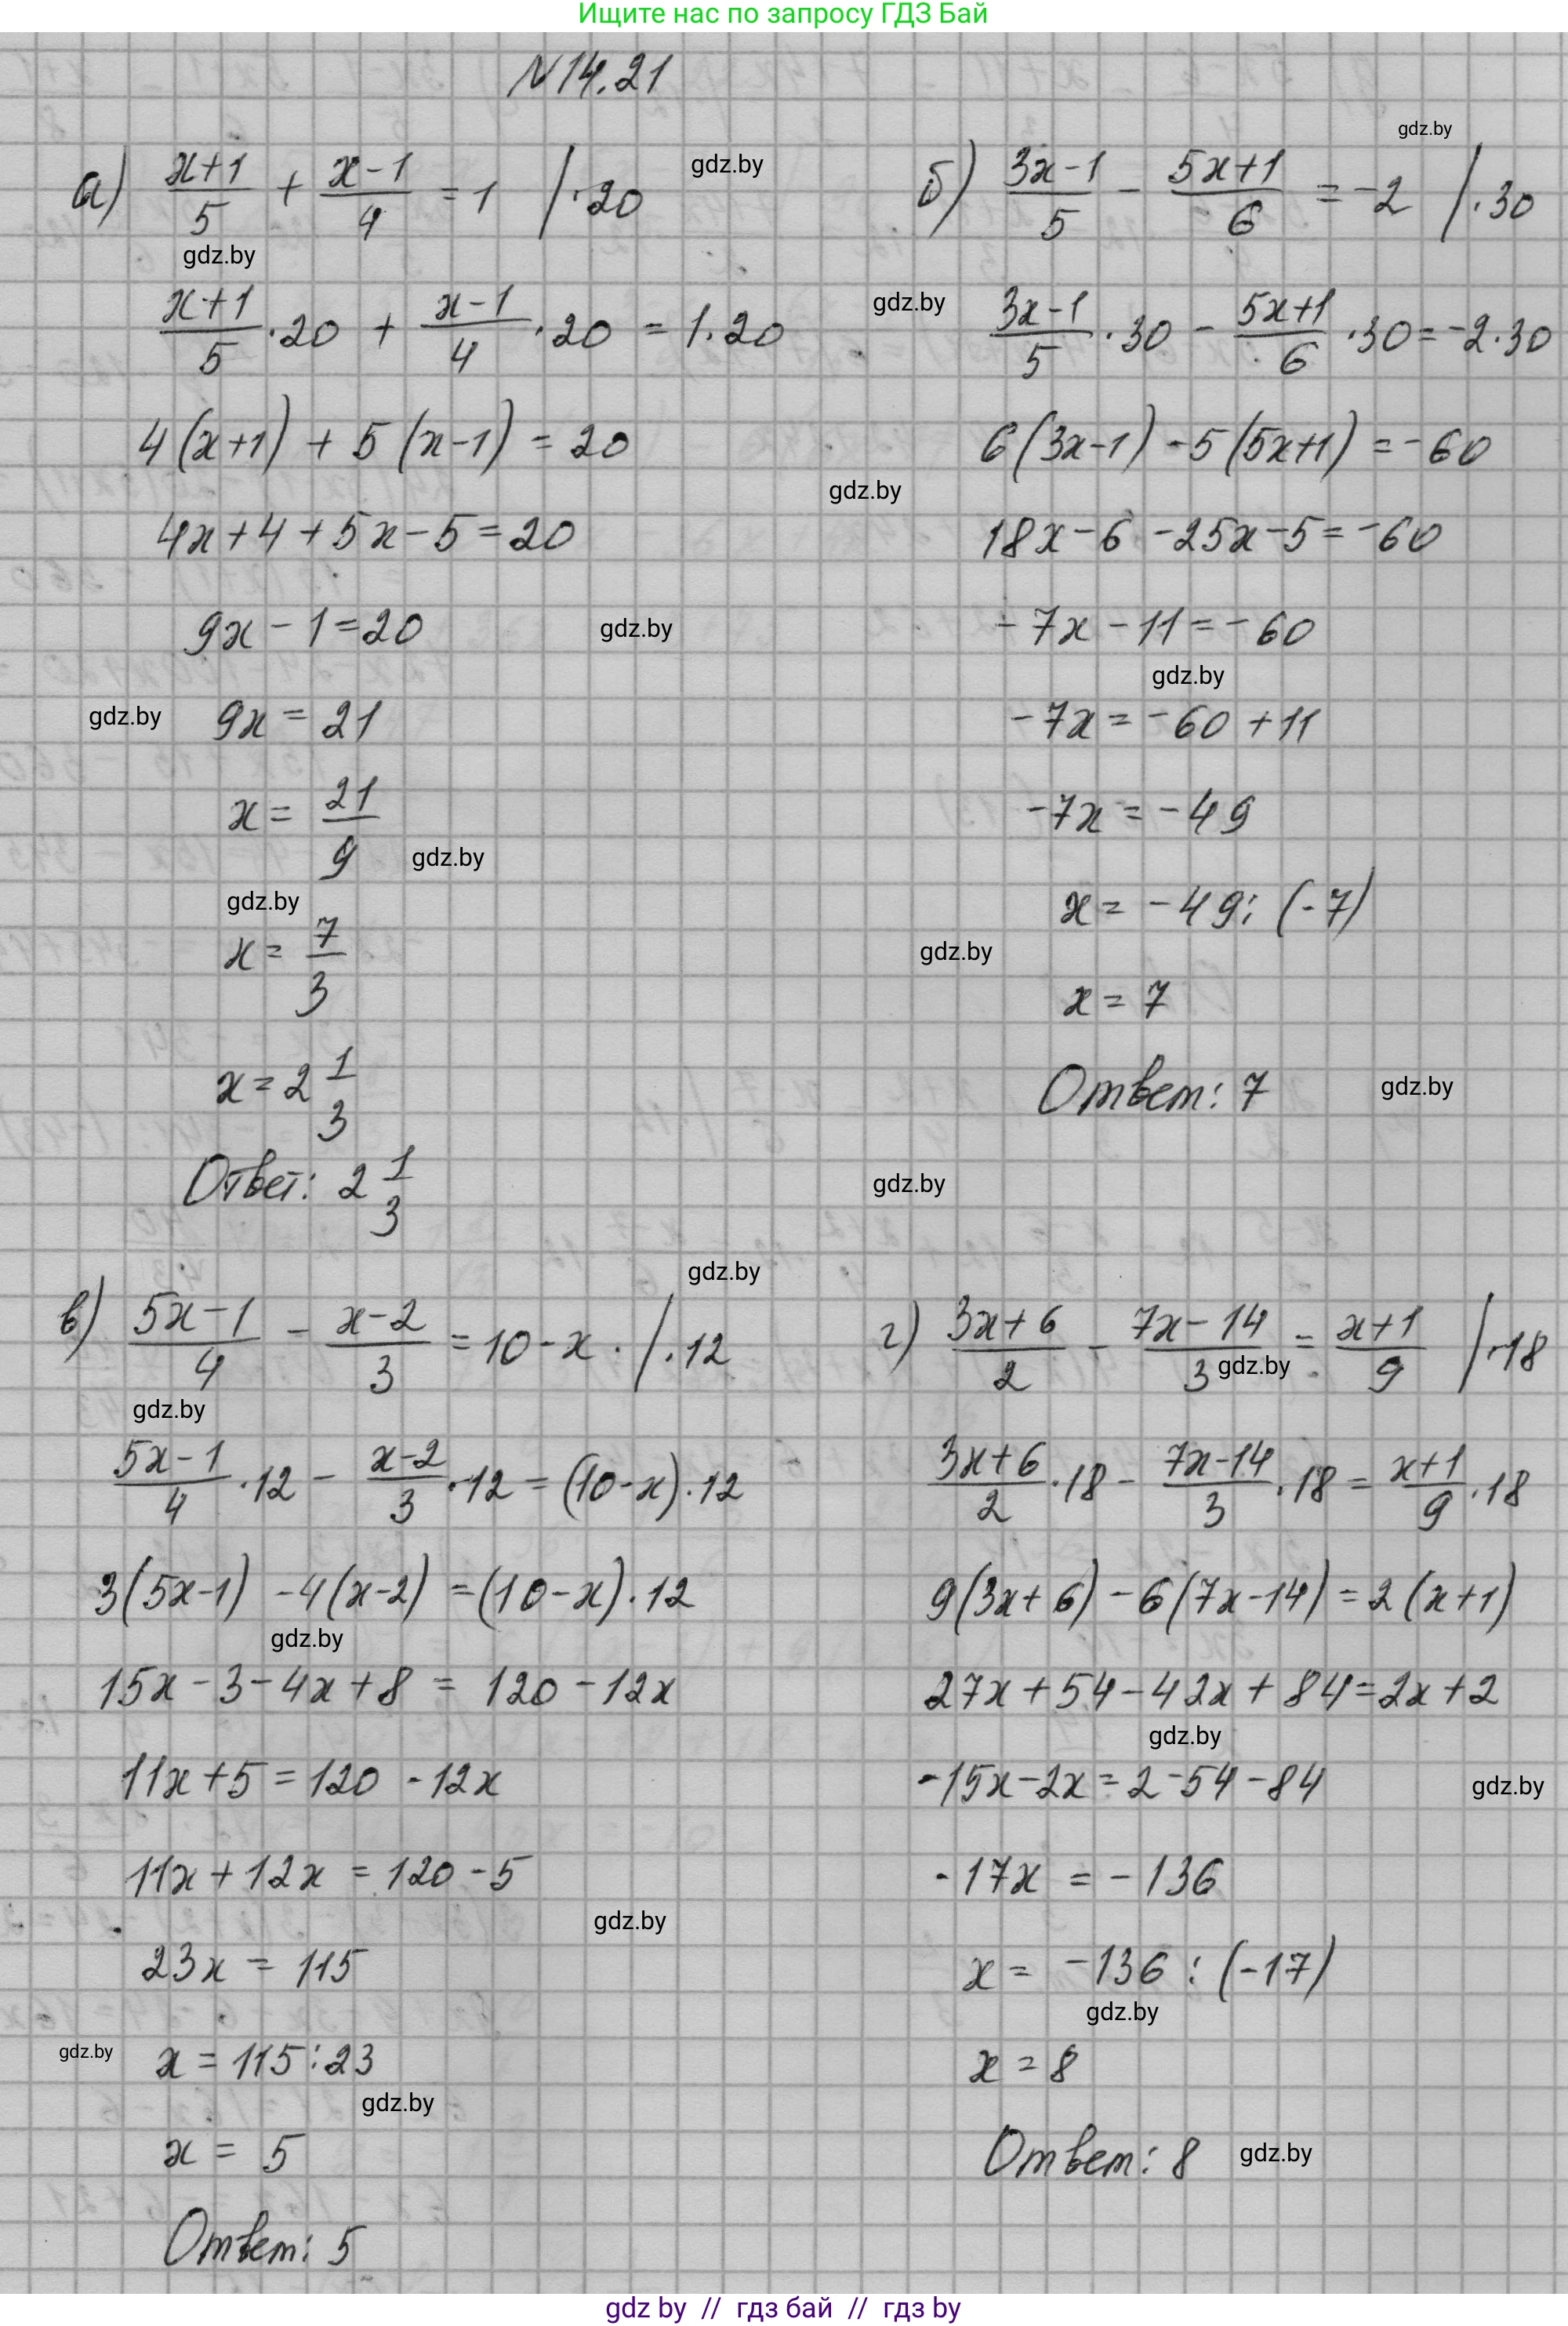 Ищите нас по запросу ГДЗ Бай
N14.21
gdz.by
а) (x+1)/5 + (x-1)/4 = 1 / ·20
gdz.by
gdz.by
(x+1)/5 ·20 + (x-1)/4 ·20 = 1·20
4(x+1) + 5(x-1) = 20
4x+4+5x-5=20
9x-1=20
gdz.by
gdz.by
9x = 21
x = 21/9
gdz.by
gdz.by
x = 7/3
x = 2 1/3
Ответ: 2 1/3
б) (3x-1)/5 - (5x+1)/6 = -2 / ·30
gdz.by
(3x-1)/5 ·30 - (5x+1)/6 ·30 = -2·30
6(3x-1) -5(5x+1) = -60
gdz.by
18x-6 -25x-5 = -60
-7x-11 = -60
gdz.by
-7x = -60 +11
-7x = -49
x = -49 : (-7)
gdz.by
x = 7
Ответ: 7
gdz.by
gdz.by
gdz.by
в) (5x-1)/4 - (x-2)/3 = 10-x . / ·12
gdz.by
(5x-1)/4 ·12 - (x-2)/3 ·12 = (10-x)·12
3(5x-1) -4(x-2) = (10-x)·12
gdz.by
15x-3-4x+8 = 120-12x
11x+5 = 120 -12x
11x+12x = 120-5
gdz.by
23x = 115
gdz.by
x = 115:23
gdz.by
x = 5
Ответ: 5
г) (3x+6)/2 - (7x-14)/3 = (x+1)/9 / ·18
gdz.by
(3x+6)/2 ·18 - (7x-14)/3 ·18 = (x+1)/9 ·18
9(3x+6) -6(7x-14) = 2(x+1)
27x+54-42x+84=2x+2
gdz.by
-15x-2x = 2-54-84
gdz.by
-17x = -136
x = -136 : (-17)
gdz.by
x = 8
Ответ: 8
gdz.by
gdz by // гдз бай // гдз by